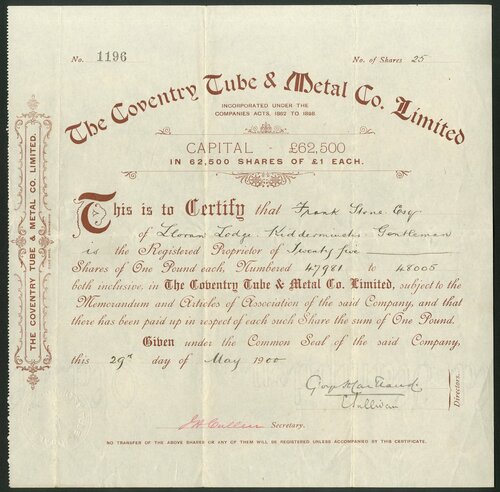 No. 1196
No. of Shares 25
The Coventry Tube & Metal Co. Limited
INCORPORATED UNDER THE
COMPANIES ACTS, 1862 TO 1898.
CAPITAL - £62,500
IN 62,500 SHARES OF £1 EACH.
This is to Certify that Frank Stone Esq
of Lodge Kidderminster Gentleman
is the Registered Proprietor of Twenty five
Shares of One Pound each, Numbered 47981 to 48005
both inclusive, in The Coventry Tube & Metal Co. Limited, subject to the
Memorandum and Articles of Association of the said Company, and that
there has been paid up in respect of each such Share the sum of One Pound.
Given under the Common Seal of the said Company,
this 29th day of May 1900
Sullivan
Directors.
Secretary.
NO TRANSFER OF THE ABOVE SHARES OR ANY OF THEM WILL BE REGISTERED UNLESS ACCOMPANIED BY THIS CERTIFICATE.
THE COVENTRY TUBE & METAL CO. LIMITED.